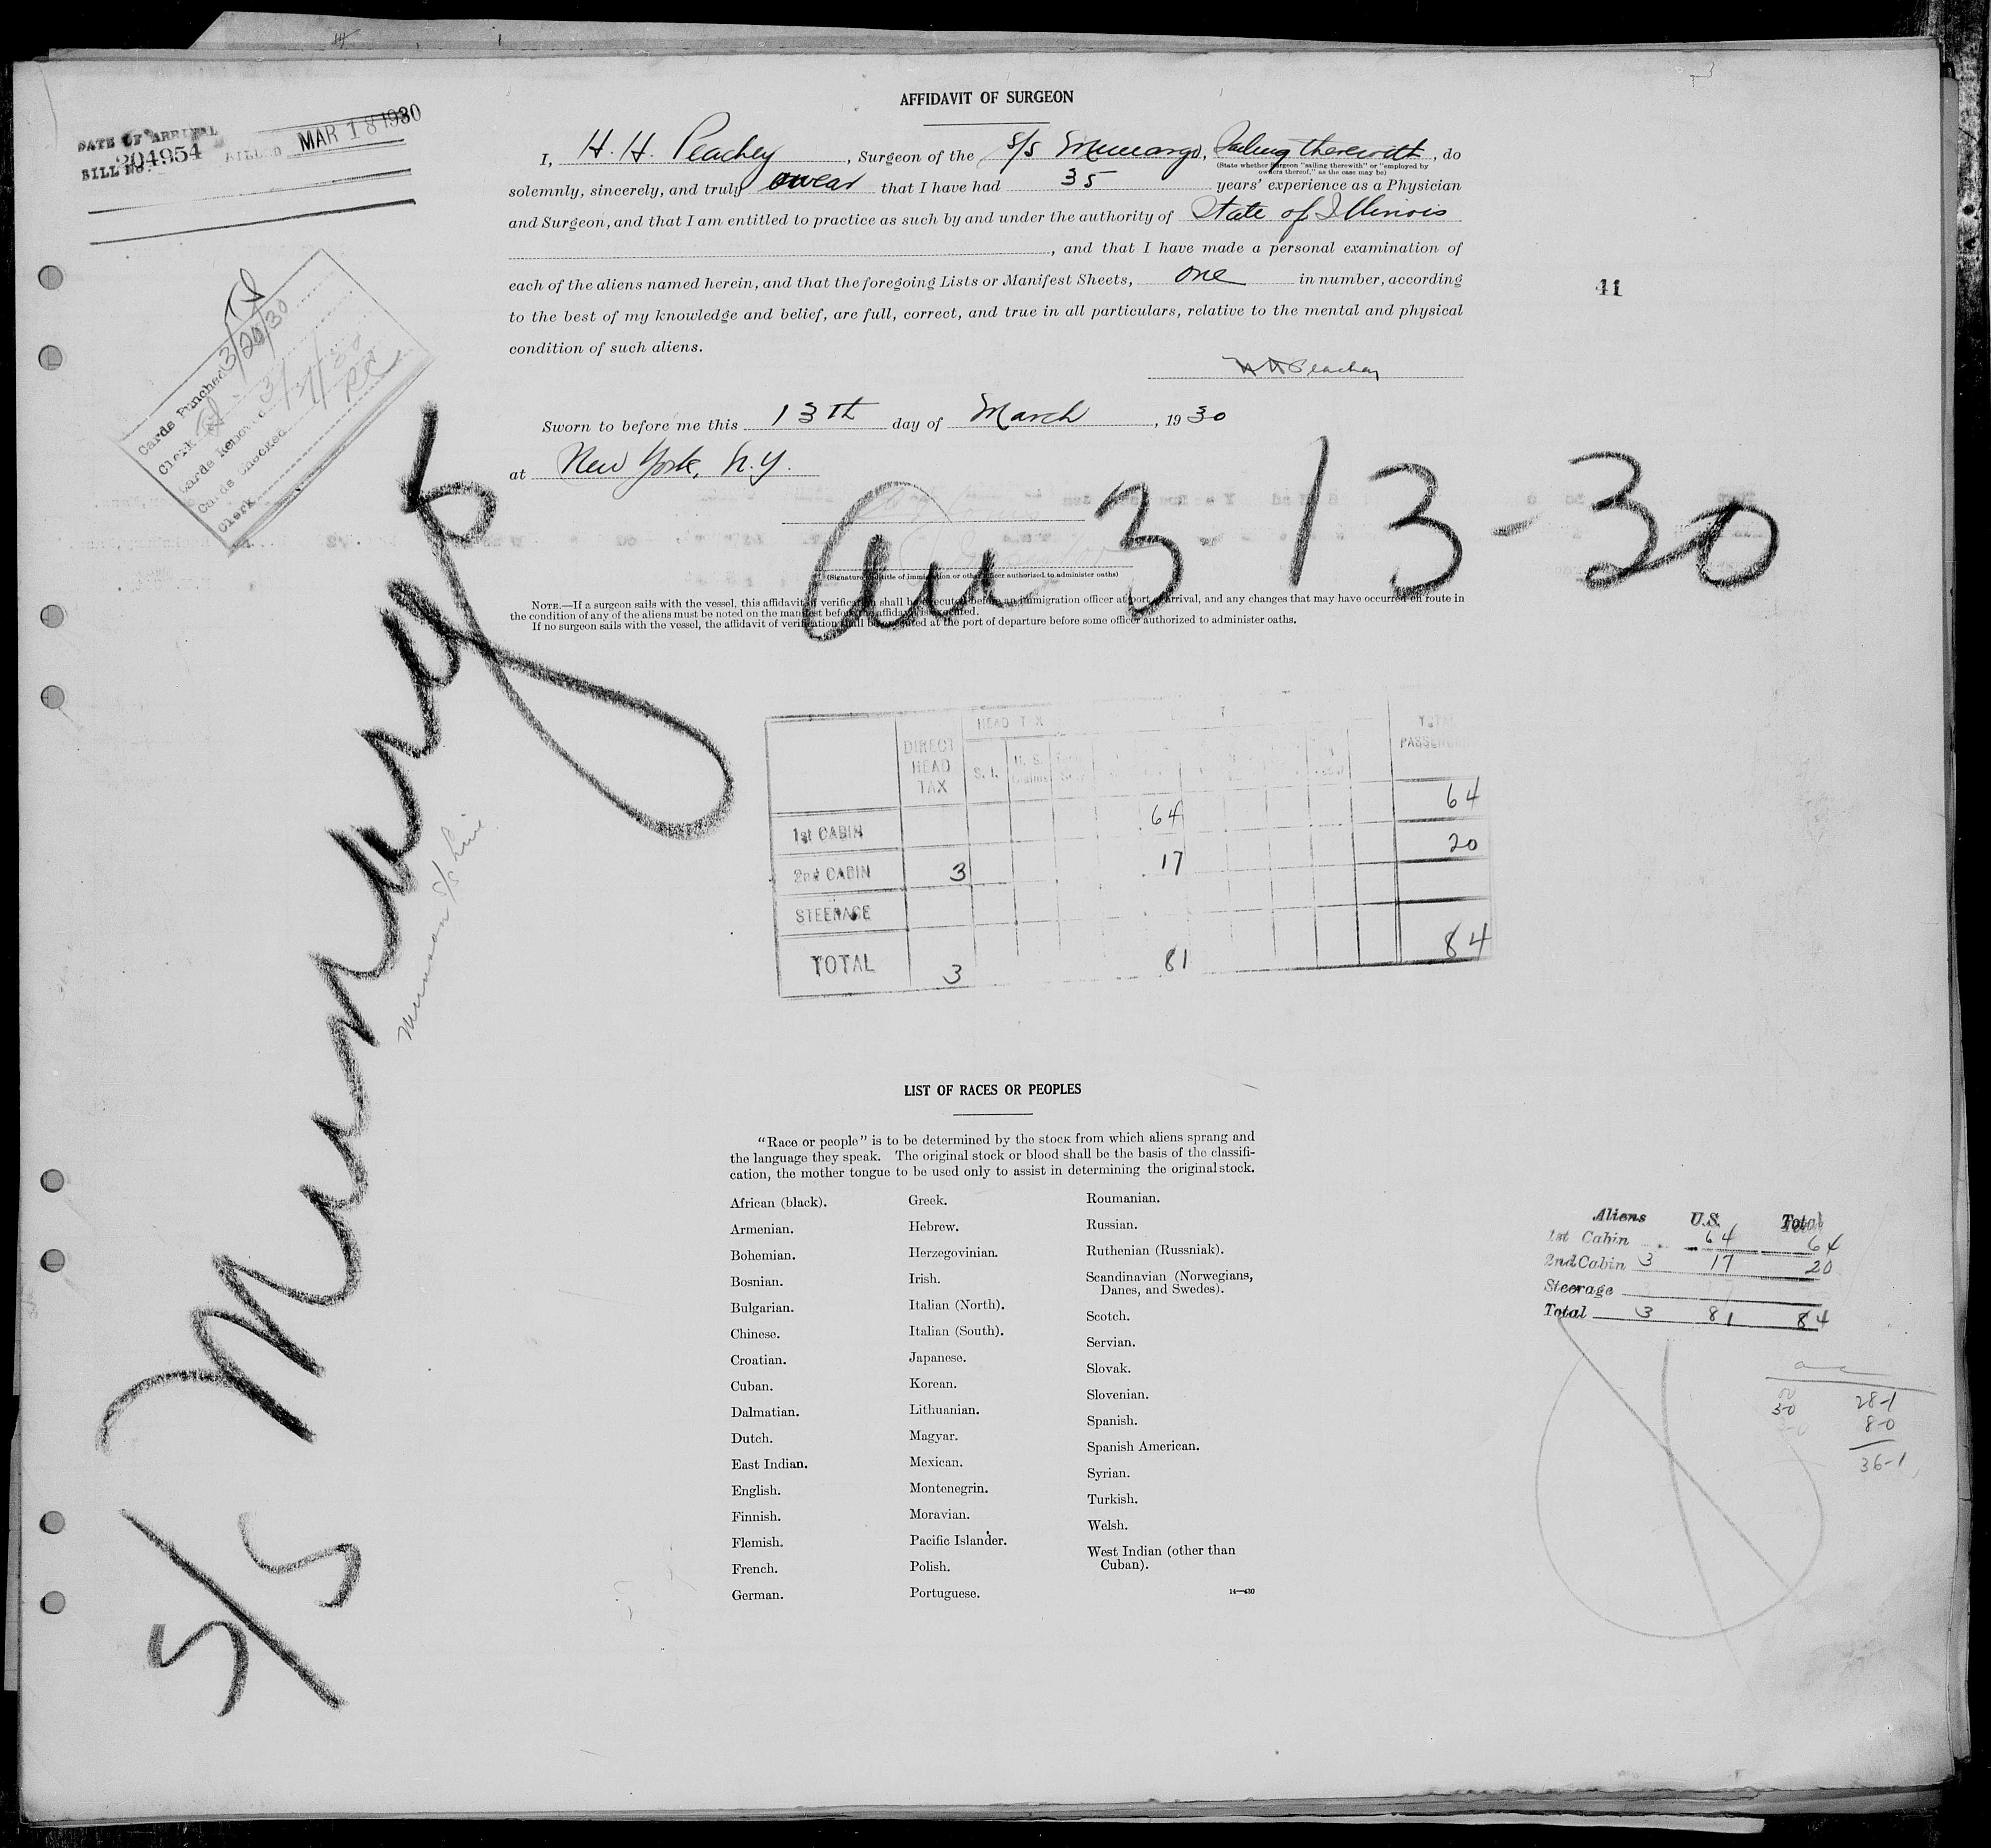 AFFIDAVIT OF SURGEON
DATE OF ARRIVAL
BILL No. 204954 BILLED MAR 18 1930
I, H. H. Peachey, Surgeon of the S/S Munargo, Sailing therewith, do
(State whether Surgeon "sailing therewith" or "employed by
owners thereof," as the case may be)
solemnly, sincerely, and truly swear that I have had 35 years' experience as a Physician
and Surgeon, and that I am entitled to practice as such by and under the authority of State of Illinois
, and that I have made a personal examination of
each of the aliens named herein, and that the foregoing Lists or Manifest Sheets, one in number, according
to the best of my knowledge and belief, are full, correct, and true in all particulars, relative to the mental and physical
condition of such aliens.
HH Peachey
41
Cards Punched 3/20/30
Clerk
Cards Removed 3/31/30
Cards Checked RR
Clerk
Sworn to before me this 13th day of March, 1930
at New York, N.Y.
Arr 3 13-30
(Signature and title of immigration or other officer authorized to administer oaths)
NOTE.—If a surgeon sails with the vessel, this affidavit of verification shall be executed before an immigration officer at port of arrival, and any changes that may have occurred en route in
the condition of any of the aliens must be noted on the manifest before the affidavit is executed.
If no surgeon sails with the vessel, the affidavit of verification shall be executed at the port of departure before some officer authorized to administer oaths.
S/S Munargo
Munson S/S Line
HEAD TAX
DIRECT HEAD TAX S. I. U. S. Claims TOTAL PASSENGERS
1st CABIN 64 64
2nd CABIN 3 17 20
STEERAGE
TOTAL 3 81 84
LIST OF RACES OR PEOPLES
"Race or people" is to be determined by the stock from which aliens sprang and
the language they speak. The original stock or blood shall be the basis of the classifi-
cation, the mother tongue to be used only to assist in determining the original stock.
African (black).
Armenian.
Bohemian.
Bosnian.
Bulgarian.
Chinese.
Croatian.
Cuban.
Dalmatian.
Dutch.
East Indian.
English.
Finnish.
Flemish.
French.
German.
Greek.
Hebrew.
Herzegovinian.
Irish.
Italian (North).
Italian (South).
Japanese.
Korean.
Lithuanian.
Magyar.
Mexican.
Montenegrin.
Moravian.
Pacific Islander.
Polish.
Portuguese.
Roumanian.
Russian.
Ruthenian (Russniak).
Scandinavian (Norwegians,
Danes, and Swedes).
Scotch.
Servian.
Slovak.
Slovenian.
Spanish.
Spanish American.
Syrian.
Turkish.
Welsh.
West Indian (other than
Cuban).
14—430
Aliens U.S. Total
1st Cabin 64 64
2nd Cabin 3 17 20
Steerage
Total 3 81 84
30 28-1
8-0
36-1